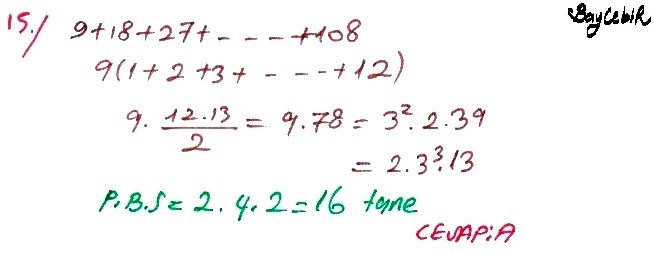 BayCebiR
15./ 9+18+27+----+108
9(1+2+3+---+12)
9. 12.13/2 = 9.78 = 3².2.39
= 2.3³.13
P.B.S = 2.4.2=16 tane
CEVAP:A